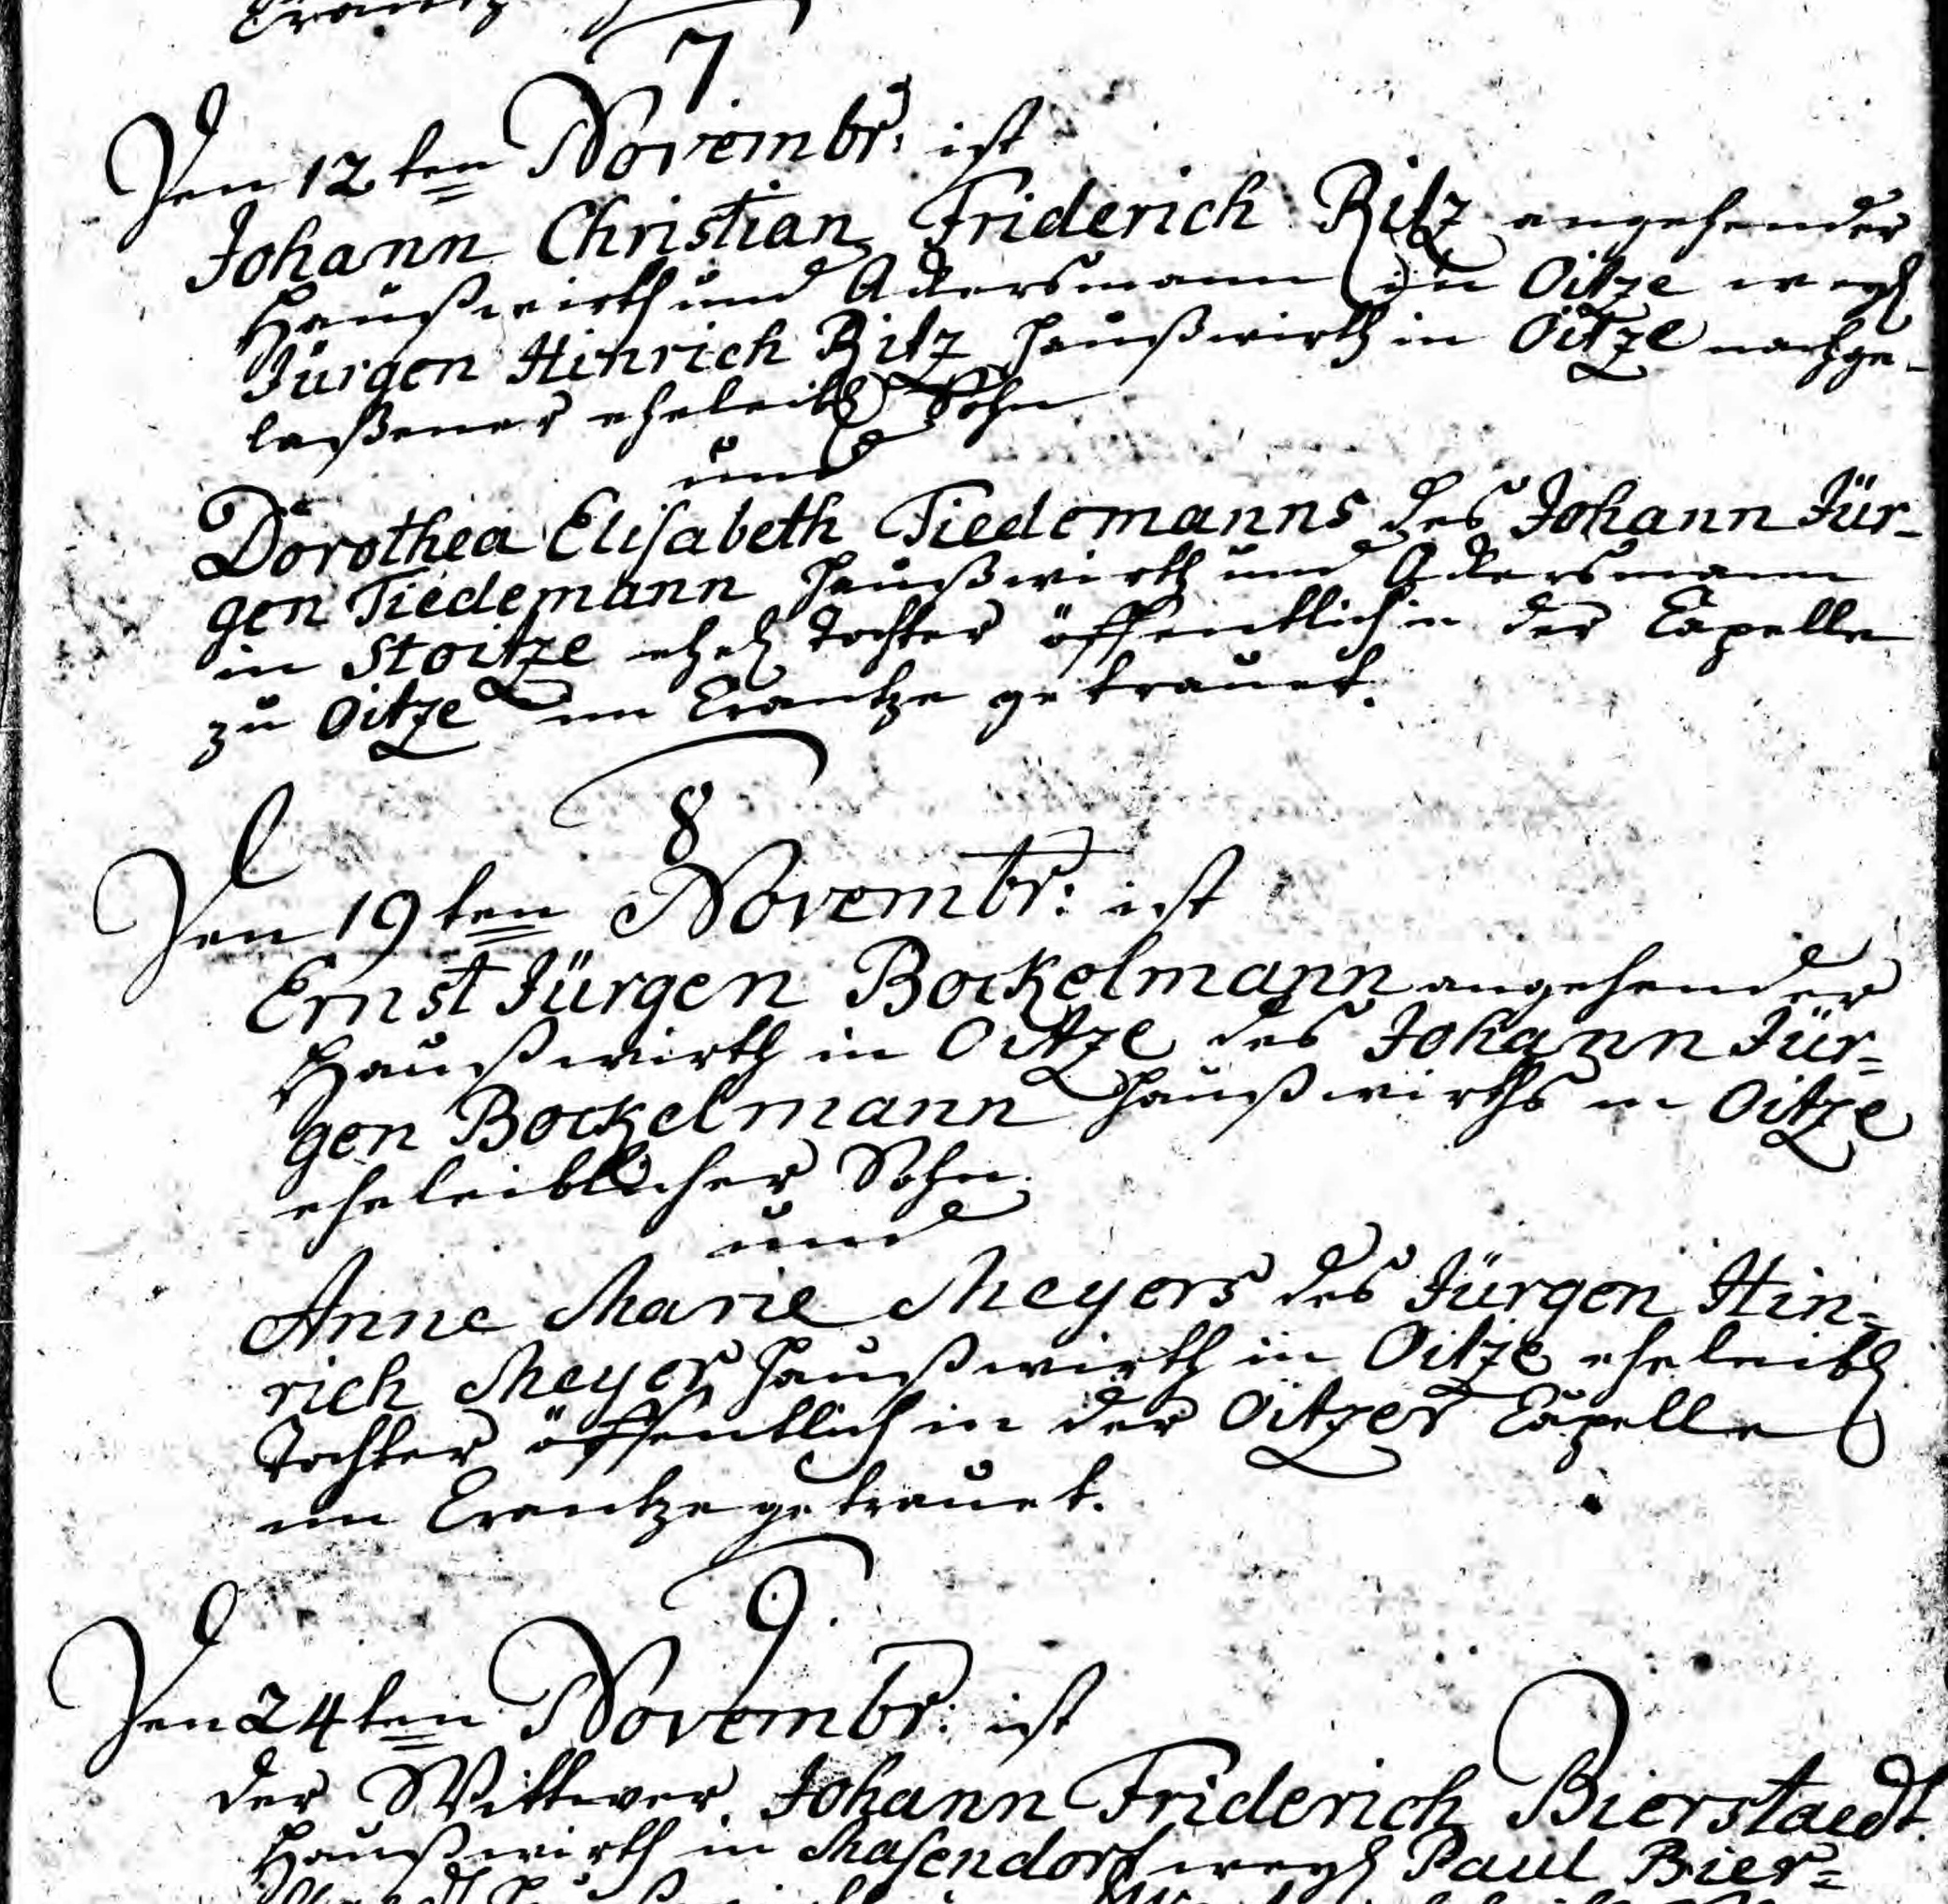 Crantz
7.
Den 12ten Novembr: ist
Johann Christian Friderich Ritz angehender
Haußwirth und Ackersmann in Oitze weyl
Jürgen Hinrich Ritz Haußwirth in Oitze nachge-
laßener eheleibl Sohn
und
Dorothea Elisabeth Tiedemanns des Johann Jür-
gen Tiedemann Haußwirth und Ackersmann
in Stoitze ehel Tochter öffentlich in der Capelle
zu Oitze im Crantze getrauet.
8
Den 19ten Novembr: ist
Ernst Jürgen Bockelmann angehender
Haußwirth in Oitze des Johann Jür=
gen Bockelmann Haußwirths in Oitze
eheleiblicher Sohn
und
Anne Marie Meyers des Jürgen Hin=
rich Meyer Haußwirth in Oitze eheleibl
Tochter öffentlich in der Oitzer Capelle
im Crantze getrauet.
9.
Den 24ten Novembr: ist
der Wittwer Johann Friderich Bierstaedt
Haußwirth in Masendorf weyl Paul Bier=